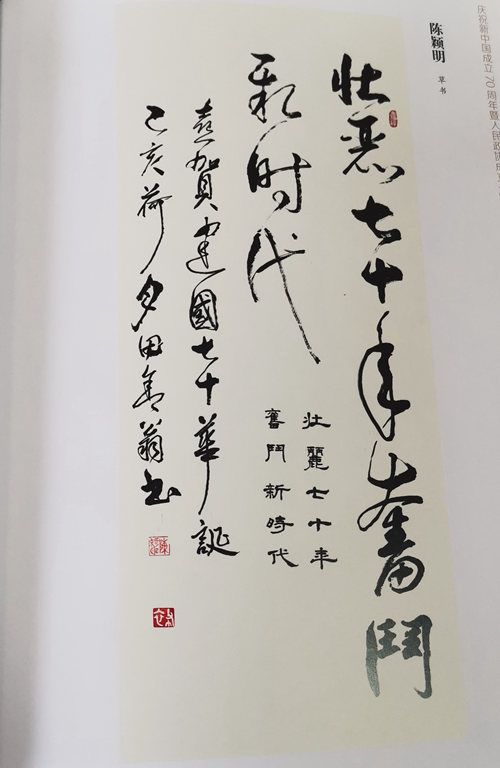 庆祝新中国成立70周年暨人民政协成
陈颖明 草书
壮麗七十年奮鬥
新时代
壮麗七十年
奮鬥新時代
喜賀建國七十華誕
己亥荷月田翁书